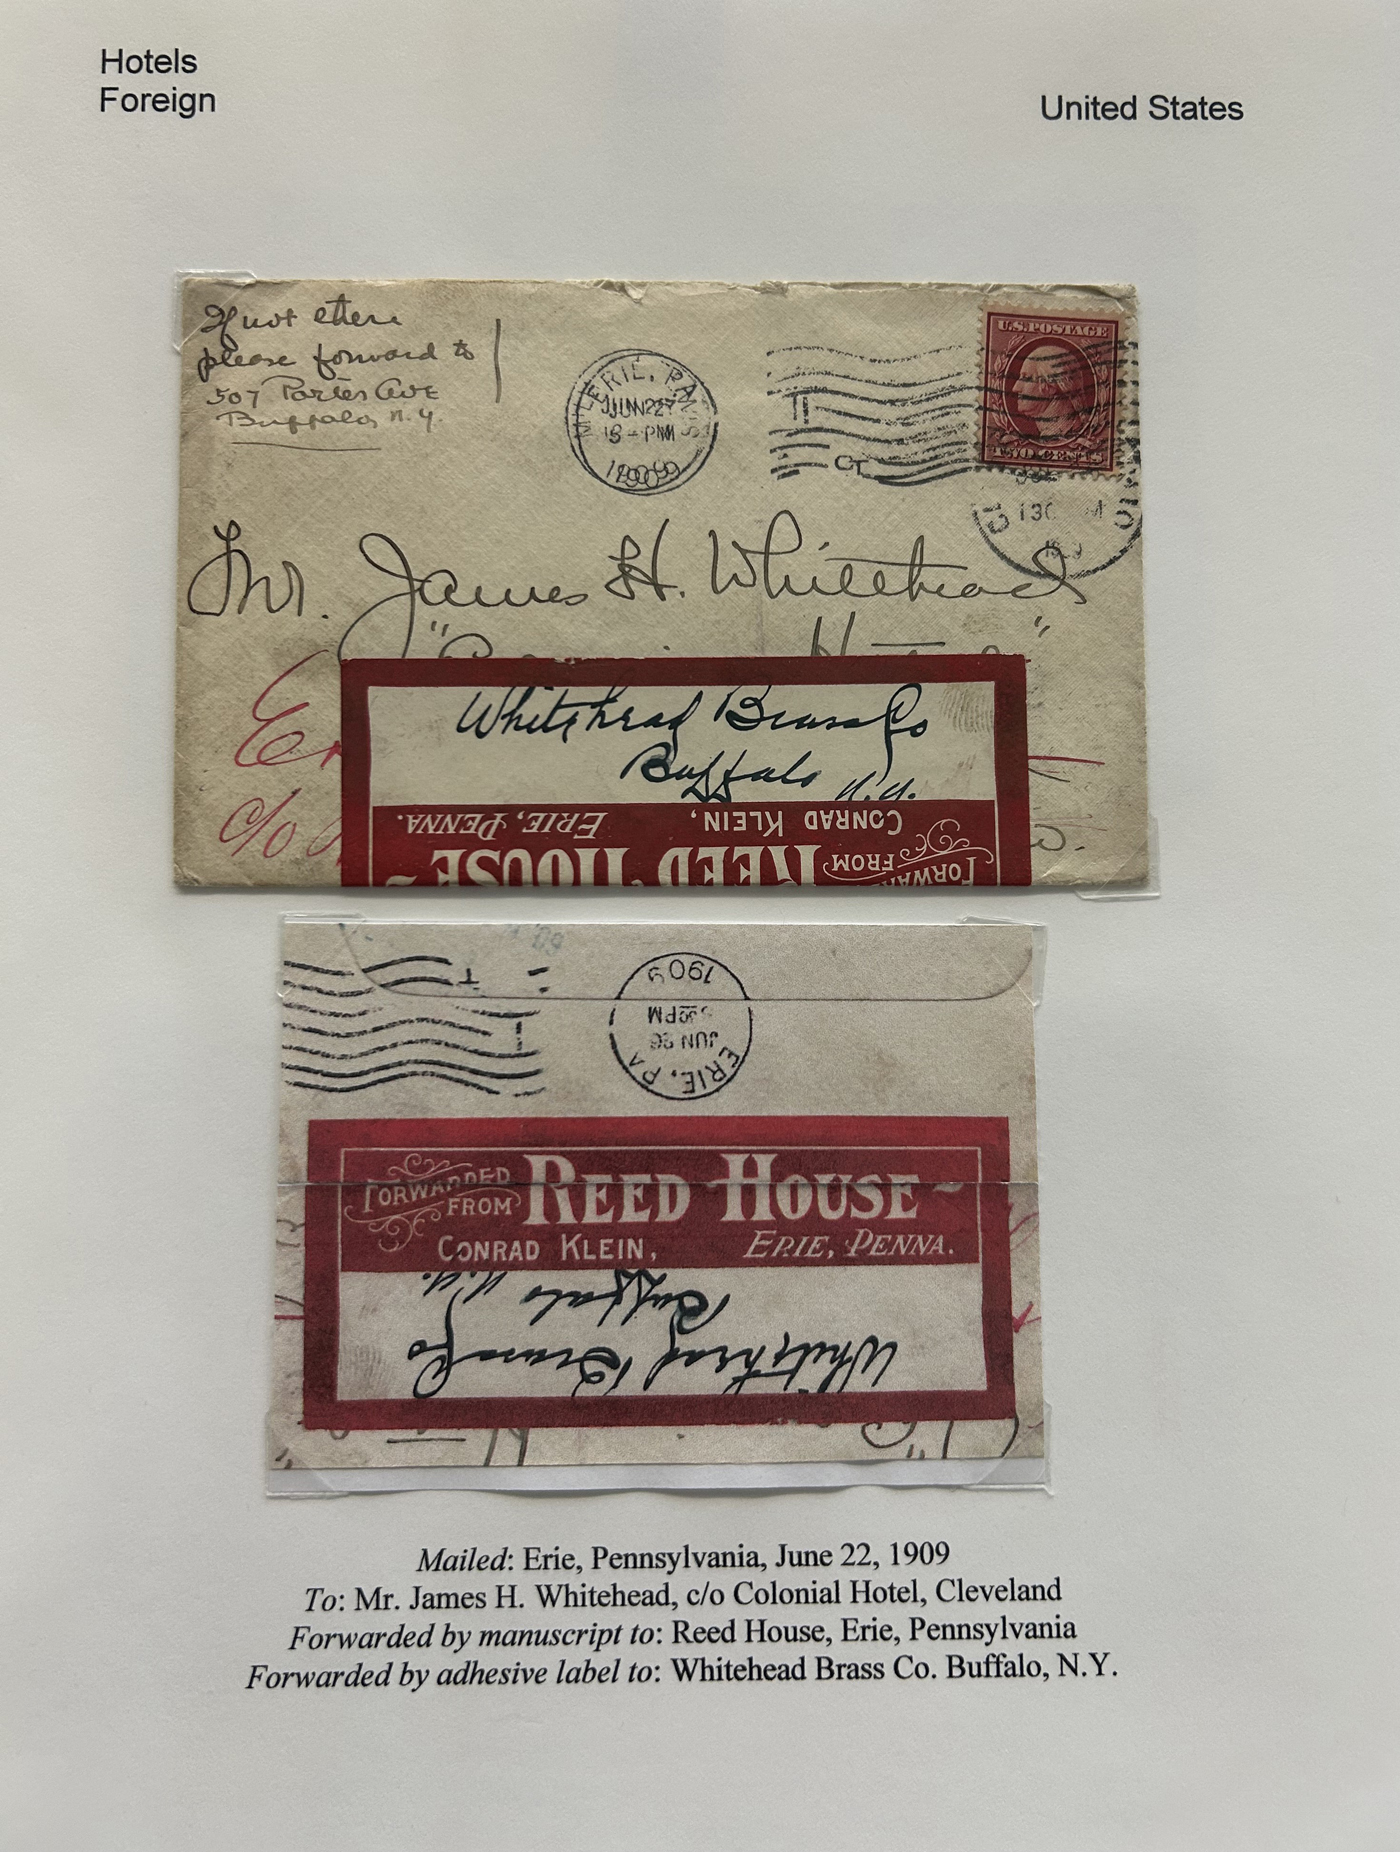 Hotels
Foreign
United States
If not there
please forward to
507 Porter Ave
Buffalo, N.Y.
ERIE, PA
JUN 22
1909
U.S. POSTAGE
TWO CENTS
130 M
Mr. James H. Whitehead
Whitehead Brass Co
Buffalo N.Y.
CONRAD KLEIN, ERIE, PENNA.
FORWARDED FROM REED HOUSE
c/o
ERIE, PA
JUN 26
PM
1909
FORWARDED FROM REED HOUSE
CONRAD KLEIN, ERIE, PENNA.
Buffalo N.Y.
Whitehead Brass Co
Mailed: Erie, Pennsylvania, June 22, 1909
To: Mr. James H. Whitehead, c/o Colonial Hotel, Cleveland
Forwarded by manuscript to: Reed House, Erie, Pennsylvania
Forwarded by adhesive label to: Whitehead Brass Co. Buffalo, N.Y.